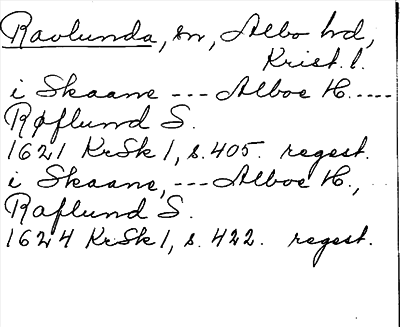 Ravlunda, sn, Albo hd,
Krist. l.
i Skaane --- Alboe H. -----
Røflund S.
1621 KrSk 1, s. 405. regest.
i Skaane, --- Alboe H.,
Raflund S.
1624 KrSk 1, s. 422. regest.